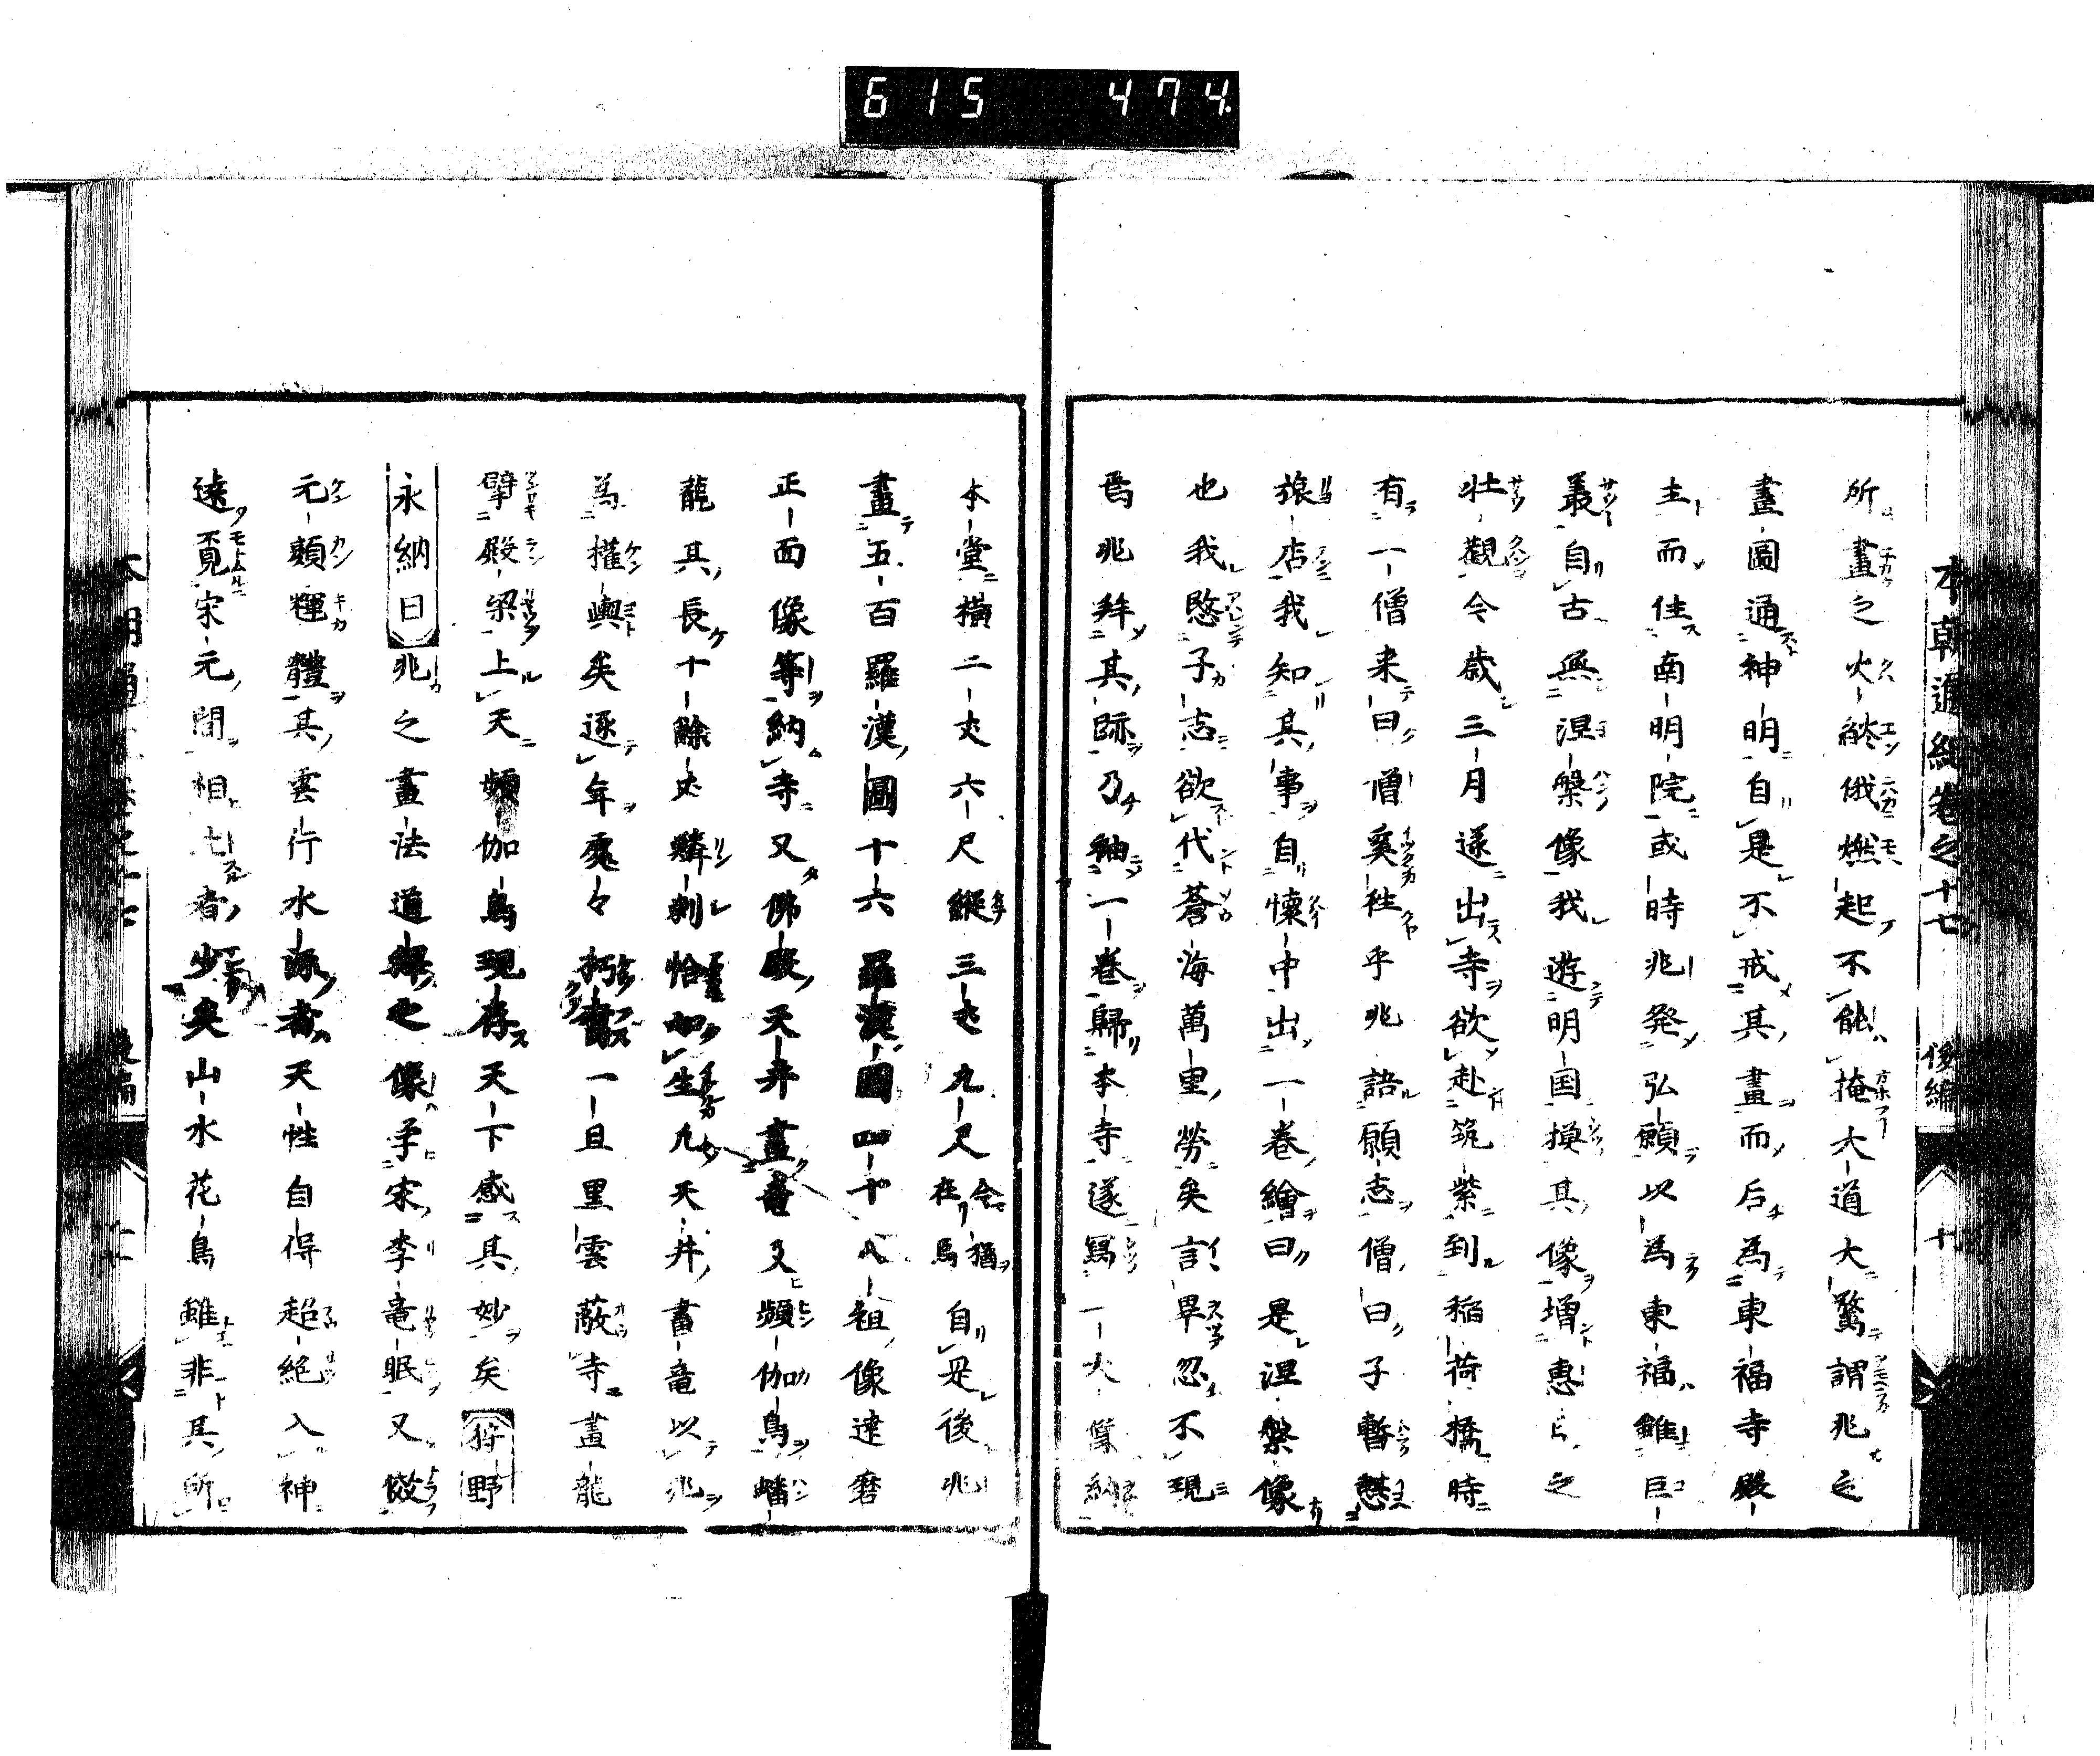 615 474
本朝通紀卷之十七 後編 十
所畫之火𦦨俄燃起不能掩大道大驚謂兆之
畫圖通神明自是不戒其畫而后為東福寺殿
主而住南明院或時兆発弘願以為東福雖巨
叢自古無涅槃像我遊明国摸其像增惠日之
壯觀今歲三月遂出寺欲赴筑紫到稲荷橋時
有一僧来曰僧奚徃乎兆語願志僧曰子暫憇
旅店我知其事自懐中出一卷繪曰是涅槃像
也我愍子志欲代蒼海萬里勞矣言畢忽不現
焉兆拜其跡乃紬一卷歸本寺遂冩一大隻納
本堂橫二丈六尺縱三丈九尺今猶在焉自是後兆
畫五百羅漢圖十六羅漢圖四十八祖像達磨
正面像等納寺又佛殿天井畫竜又頻伽鳥蟠
龍其長十餘丈鱗刺恰如生凡天井畫竜以兆
為權輿矣逐年處々朽蠹一旦黒雲蔽寺畫龍
擘殿梁上天頻伽鳥現存天下感其妙矣狩野
永納曰兆之畫法道釋之像学宋李竜眠又傚
元顏輝體其雲行水流者天性自得超絶入神
遠覓宋元間相匕者少矣山水花鳥雖非其所